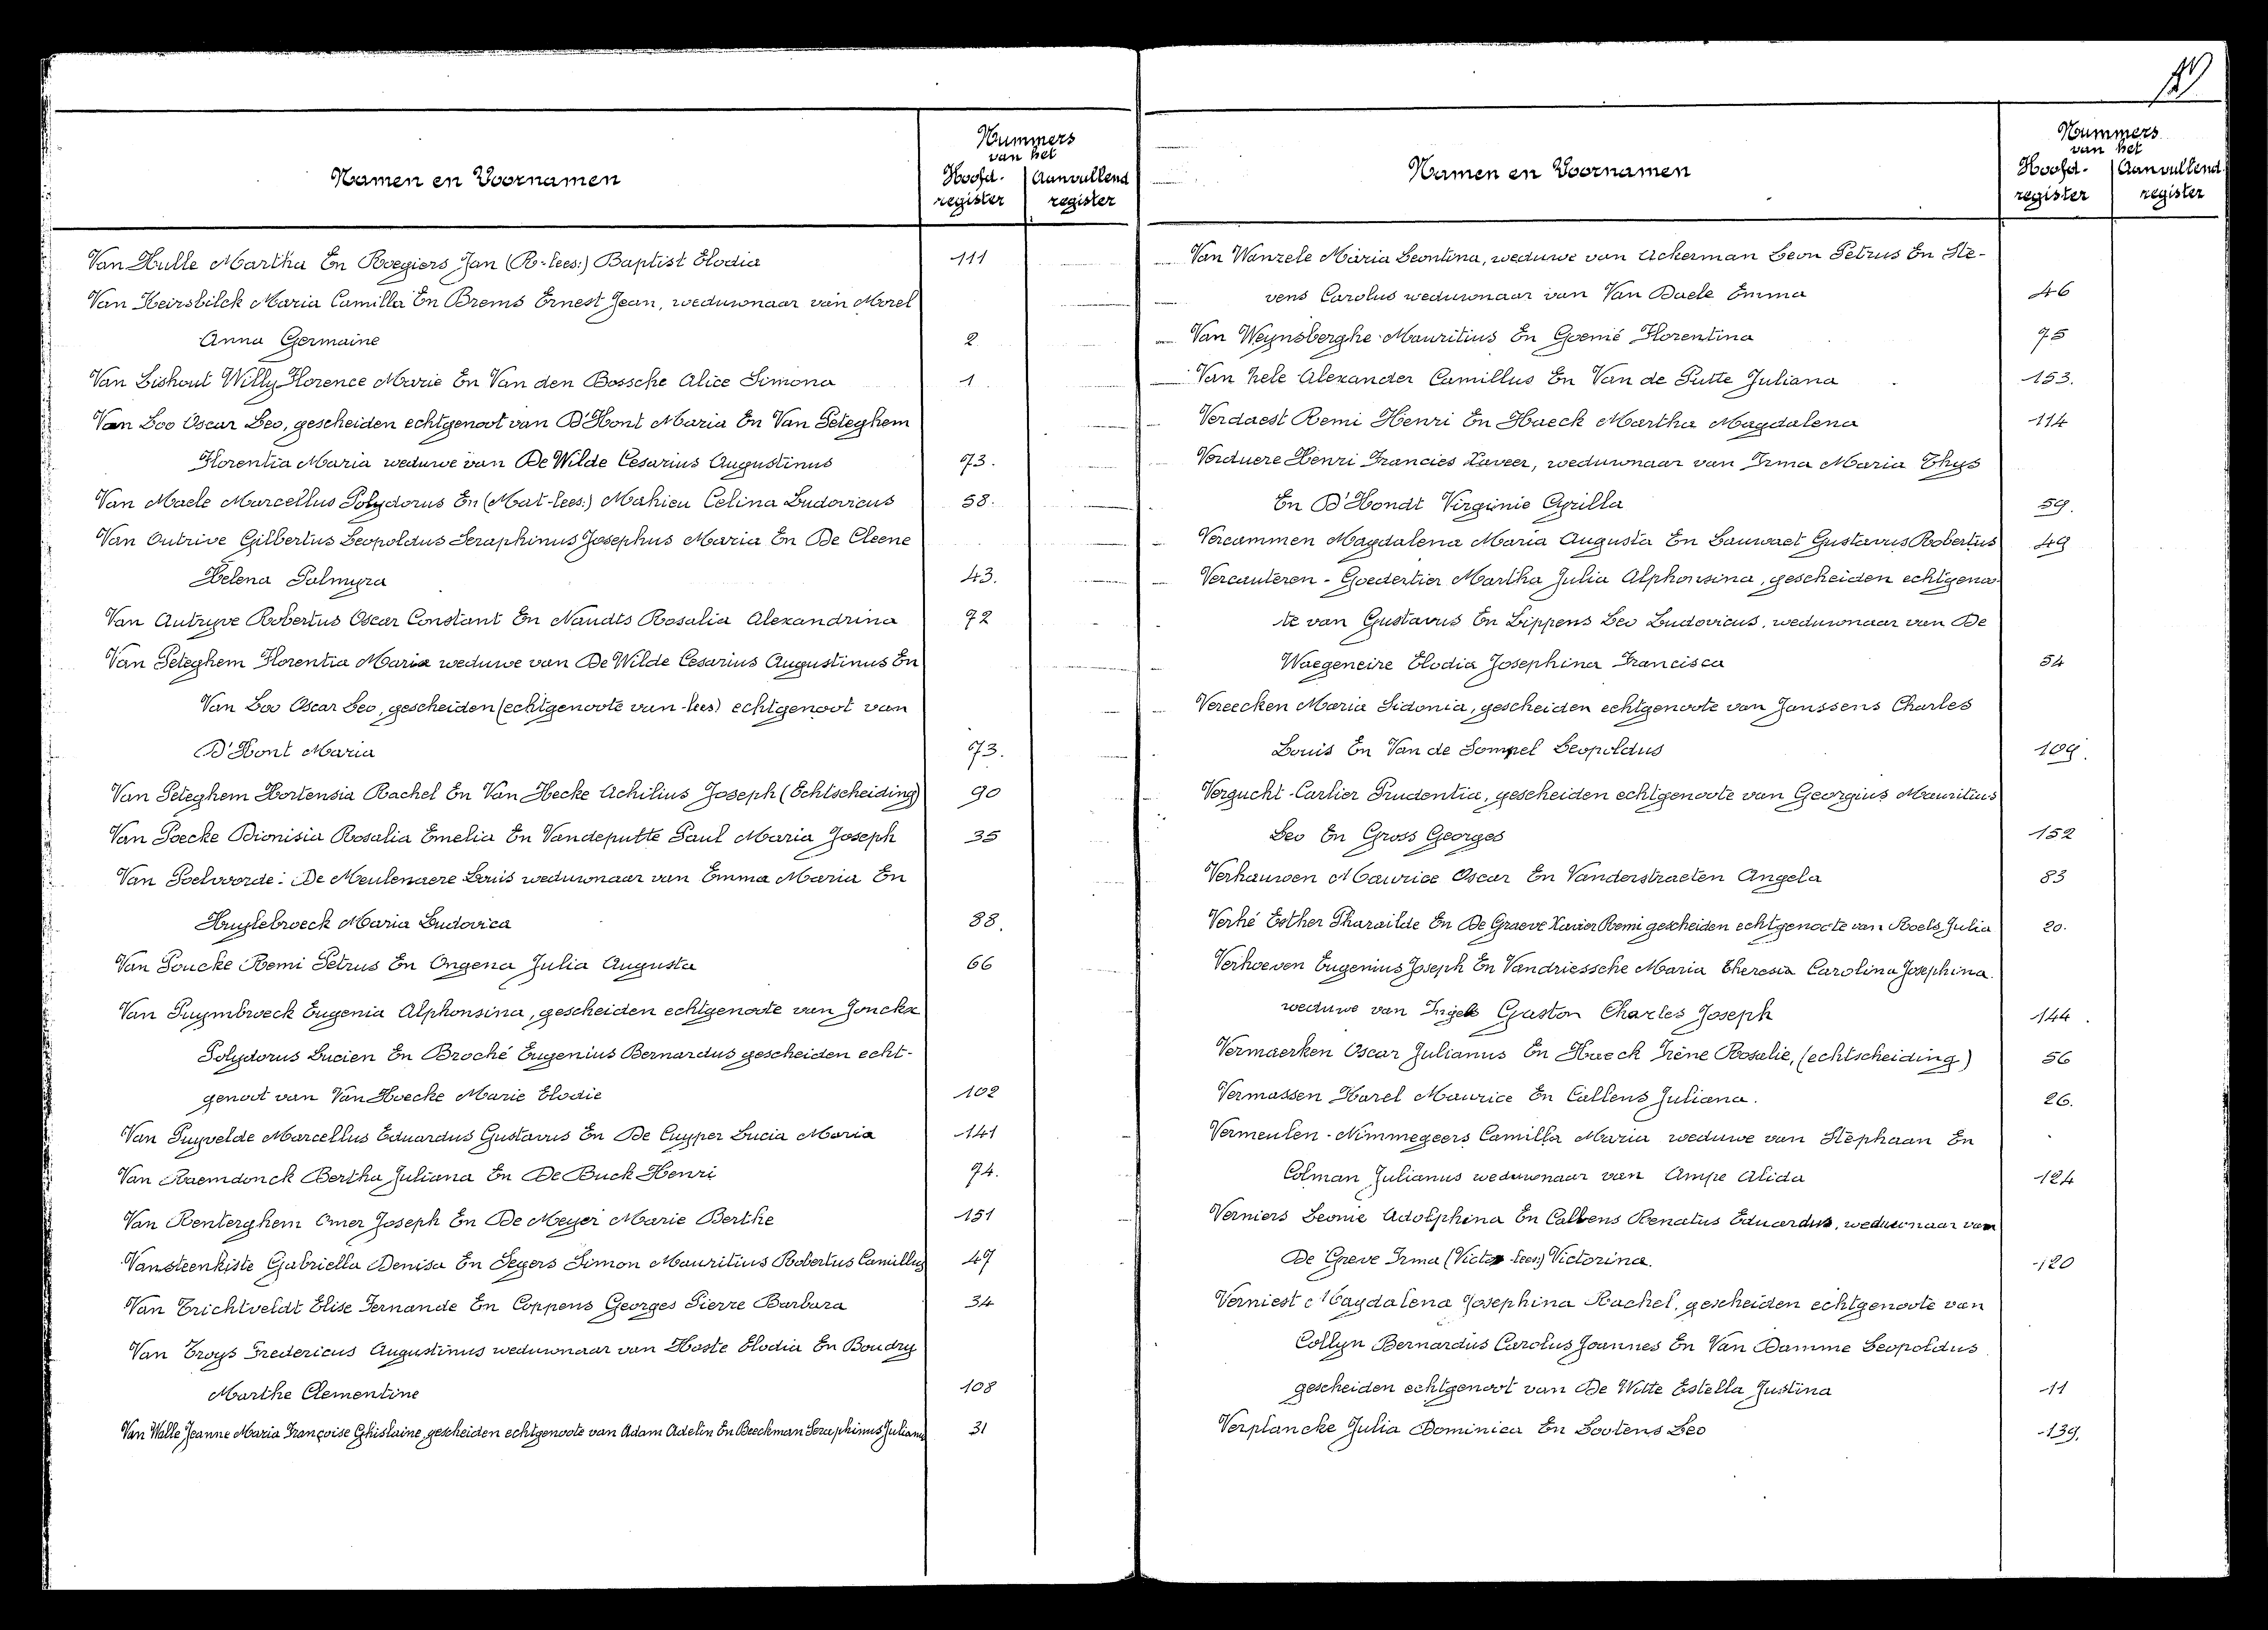 Nummers
van het
Namen en Voornamen
Hoofd- Aanvullend
register register
Van Hulle Martha En Roegiers Jan (R-lees:) Baptist Elodia 111
Van Heirsbilck Maria Camilla En Brems Ernest Jean, weduwnaar van Morel
Anna Germaine 2
Van Lishout Willy Florence Marie En Van den Bossche Alice Simona 1
Van Loo Oscar Leo, gescheiden echtgenoot van D'Hont Maria En Van Peteghem
Florentia Maria weduwe van De Wilde Cesarius Augustinus 73.
Van Maele Marcellus Polydorus En (Mat-lees:) Mahieu Celina Ludovicus 58.
Van Outrive Gilbertus Leopoldus Seraphinus Josephus Maria En De Cleene
Helena Palmyra 43.
Van Autryve Robertus Oscar Constant En Naudts Rosalia Alexandrina 72
Van Peteghem Florentia Maria weduwe van De Wilde Cesarius Augustinus En
Van Loo Oscar Leo, gescheiden (echtgenoote van-lees) echtgenoot van
D'Hont Maria 73.
Van Peteghem Hortensia Rachel En Van Hecke Achilius Joseph (Echtscheiding) 90
Van Poecke Dionisia Rosalia Emelia En Vandeputte Paul Maria Joseph 35
Van Poelvoorde: De Meulenaere Louis weduwnaar van Emma Maria En
Huylebroeck Maria Ludovica 88.
Van Poucke Remi Petrus En Ongena Julia Augusta 66
Van Puymbroeck Eugenia Alphonsina, gescheiden echtgenoote van Jonckx
Polydorus Lucien En Broché Eugenius Bernardus gescheiden echt-
genoot van Van Hoecke Marie Elodie 102
Van Puyvelde Marcellus Eduardus Gustavus En De Cuyper Lucia Maria 141
Van Raemdonck Bertha Juliana En De Buck Henri 74.
Van Renterghem Omer Joseph En De Meyer Marie Berthe 151
Vansteenkiste Gabriella Denisa En Segers Simon Mauritius Robertus Camillus 47
Van Trichtveldt Elise Fernande En Coppens Georges Pierre Barbara 34
Van Troys Fredericus Augustinus weduwnaar van Hoste Elodia En Boudry
Marthe Clementine 108
Van Walle Jeanne Maria Françoise Ghislaine, gescheiden echtgenoote van Adam Adelin En Beeckman Seraphinus Julianus 31
Nummers
van het
Namen en Voornamen
Hoofd- Aanvullend
register register
Van Wanzele Maria Leontina, weduwe van Ackerman Leon Petrus En Ste-
vens Carolus weduwnaar van Van Daele Emma 46
Van Weynsberghe Mauritius En Goemé Florentina 75
Van hele Alexander Camillus En Van de Putte Juliana 153.
Verdaest Remi Henri En Haeck Martha Magdalena 114
Verduere Henri Francies Xaveer, weduwnaar van Irma Maria Thys
En D'Hondt Virginie Cyrilla 59.
Vercammen Magdalena Maria Augusta En Lauwaet Gustavus Robertus 49
Vercauteren - Goedertier Martha Julia Alphonsina, gescheiden echtgenoo
te van Gustavus En Lippens Leo Ludovicus, weduwnaar van De
Waegeneire Elodia Josephina Francisca 54
Vereecken Maria Sidonia, gescheiden echtgenoote van Janssens Charles
Louis En Van de Sompel Leopoldus 109.
Vergucht-Carlier Prudentia, gescheiden echtgenoote van Georgius Mauritius
Leo En Gross Georges 152
Verhauwen Maurice Oscar En Vanderstraeten Angela 83
Verhé Esther Pharaïlde En De Graeve Xavier Remi gescheiden echtgenoote van Roels Julia 20.
Verhoeven Eugenius Joseph En Vandriessche Maria Theresia Carolina Josephina.
weduwe van Ingels Gaston Charles Joseph 144.
Vermaerken Oscar Julianus En Haeck Irène Rosalie, (echtscheiding) 56
Vermassen Karel Maurice En Callens Juliana. 26.
Vermeulen-Nimmegeers Camilla Maria weduwe van Stephaan En
Colman Julianus weduwnaar van Ampe Alida 124
Verniers Leonie Adolphina En Callens Renatus Eduardus, weduwnaar van
De Greve Irma (Victor-lees:) Victorina. 120
Verniest Magdalena Josephina Rachel, gescheiden echtgenoote van
Collyn Bernardus Carolus Joannes En Van Damme Leopoldus
gescheiden echtgenoot van De Witte Estella Justina 11
Verplancke Julia Dominica En Lootens Leo 139.